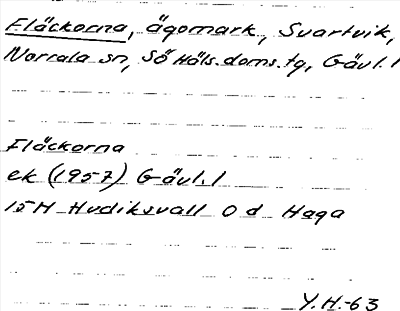 Fläckorna, ägomark, Svartvik,
Norrala sn, Sö Häls. doms. tg, Gävl. l
Fläckorna
ek (1957) Gävl. l
15H Hudiksvall 0 d Haga
Y.H.-63